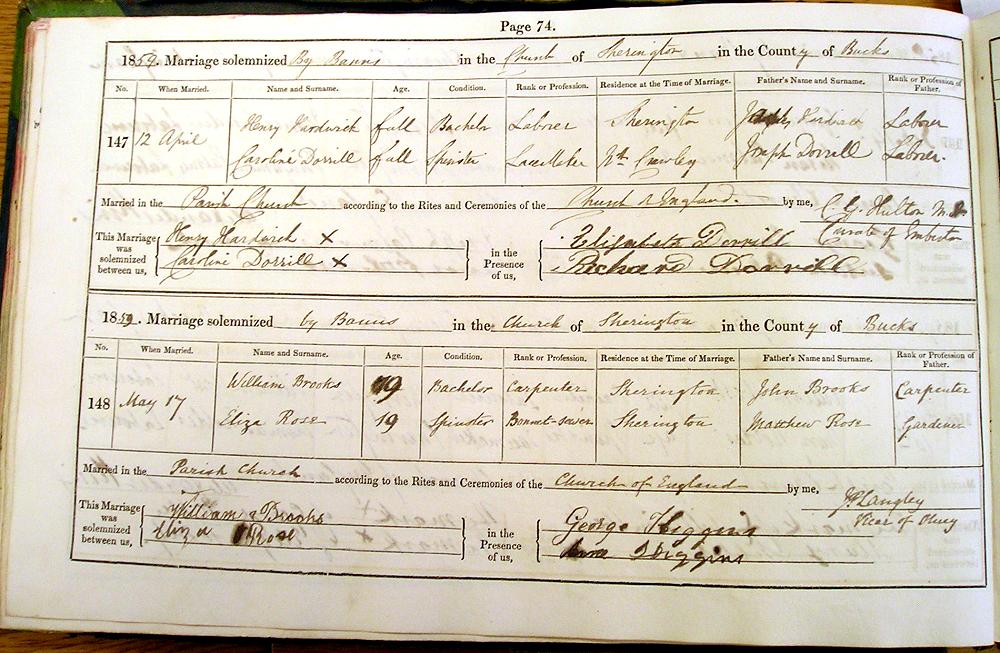 Page 74.
1859. Marriage solemnized By Banns in the Church of Sherington in the County of Bucks
No. When Married. Name and Surname. Age. Condition. Rank or Profession. Residence at the Time of Marriage. Father's Name and Surname. Rank or Profession of Father.
147 12 April Henry Hardwick full Bachelor Laborer Sherington Hardwick Laborer
Caroline Dorrill full Spinster LaceMaker Nth Crawley Joseph Dorrill Laborer.
Married in the Parish Church according to the Rites and Ceremonies of the Church of England. by me, C. G. Hulton
Curate of Emberton
This Marriage was solemnized between us, Henry Hardwick X in the Presence of us, Elizabeth Dorrill
Caroline Dorrill X Richard Dorrill
1859. Marriage solemnized by Banns in the Church of Sherington in the County of Bucks
No. When Married. Name and Surname. Age. Condition. Rank or Profession. Residence at the Time of Marriage. Father's Name and Surname. Rank or Profession of Father.
148 May 17 William Brooks 19 Bachelor Carpenter Sherington John Brooks Carpenter
Eliza Rose 19 Spinster Bonnet-sewer Sherington Matthew Rose Gardiner
Married in the Parish Church according to the Rites and Ceremonies of the Church of England by me, Langley
Vicar of Olney
This Marriage was solemnized between us, William Brooks in the Presence of us, George Higgins
Eliza Rose Higgins